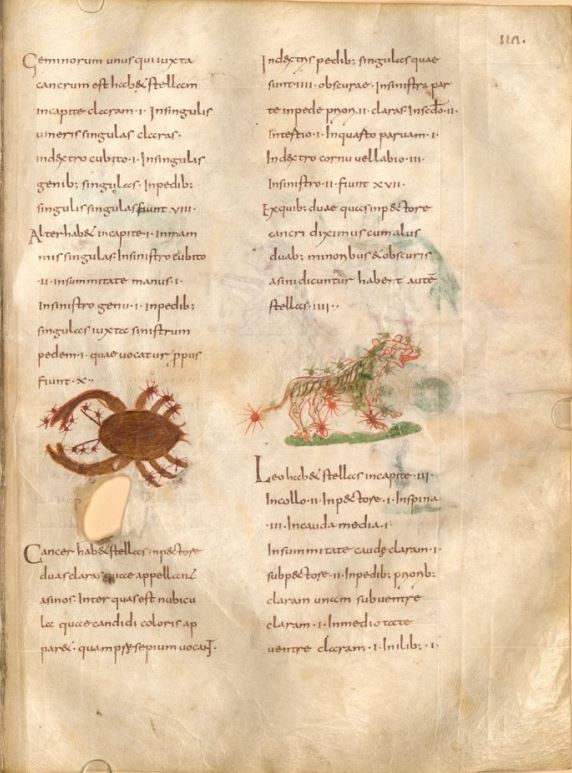 Geminorum unus qui iuxta
cancrum est hab& stellam
in capite claram ·I· In singulis
umeris singulas claras·
in dextro cubito ·I· In singulis
genib; singulas· In pedib;
singulis singulas fiunt VIII·
Alter hab& in capite ·I· in mam
mis singulas· In sinistro cubito
·II· in summitate manus ·I·
In sinistro genu ·I· In pedib;
singulas iuxta sinistrum
pedem ·I· quae vocatur ppus
fiunt ·X··
Cancer hab& stellas in pectore
duas claras quae appellant
asinos· Inter quas est nubicu
la quae candidi coloris ap
par&· quam presepium vocant·
In dextris pedib; singulas quae
sunt IIII· obscurae· In sinistra par
te in pede prion· II· claras· In scdo· II·
In tertio ·I· In quarto parvam ·I·
In dextro cornu vel labio ·III·
In sinistro ·II· fiunt XVII·
Ex quib; duae quas in pectore
cancri diximus cum alus
duab; minoribus & obscuris
asini dicuntur habent autē
stellas ·IIII··
Leo hab& stellas in capite ·III·
In collo ·II· In pectore ·I· In spina
·III· In cauda media ·I·
In summitate caude claram ·I·
sub pectore ·II· In pedib; priorib;
claram unam sub ventre
claram ·I· In medio tate
ventre claram ·I· In ilib; ·I·